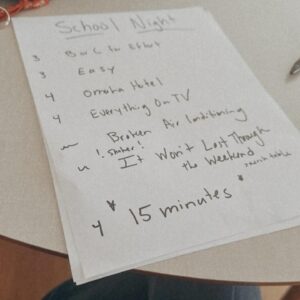 School Night
3 Back to Effort
3 Easy
4 Omaha Hotel
4 Everything On TV
Broken Air Conditioning
! Shaker!
4 It Won't Last Through
the Weekend
4 * 15 minutes *